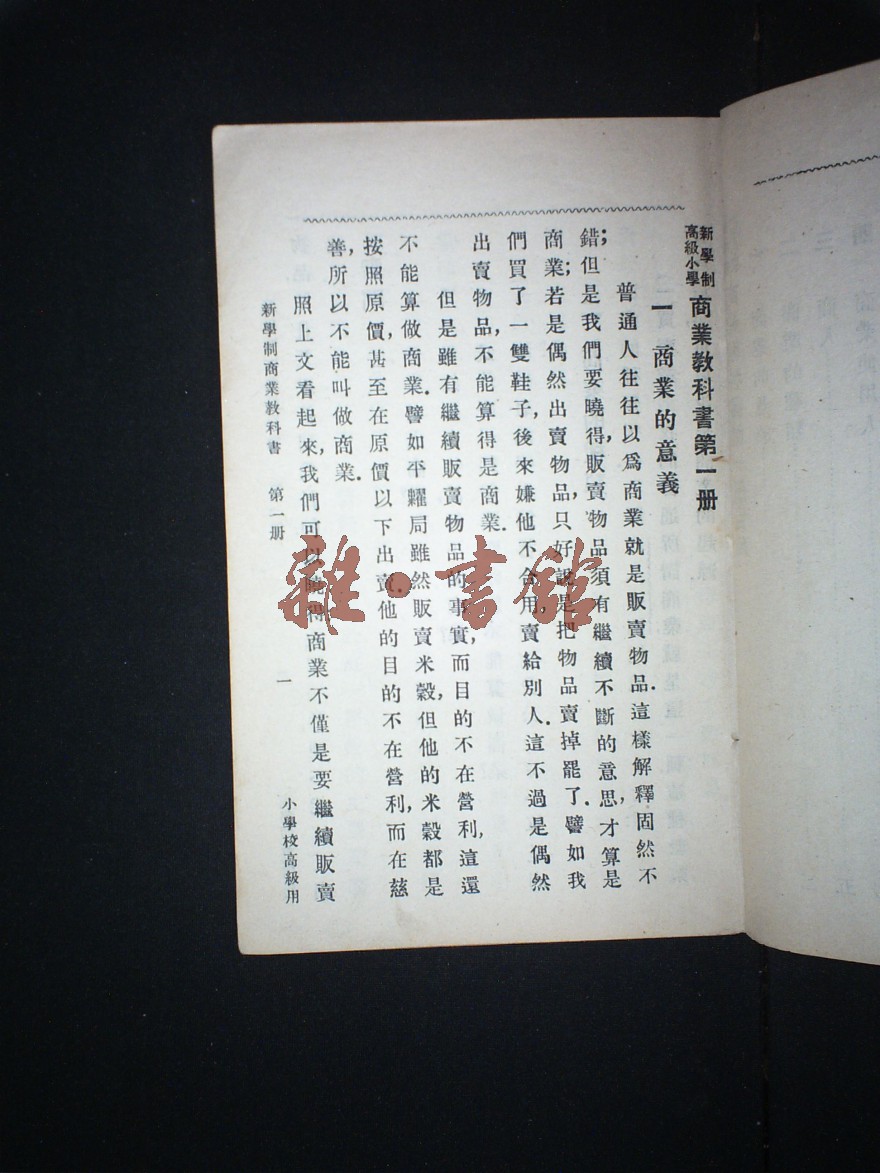 新學制
高級小學
商業教科書第一册
一 商業的意義
普通人往往以爲商業就是販賣物品.這樣解釋,固然不
錯;但是我們要曉得,販賣物品須有繼續不斷的意思,才算是
商業;若是偶然出賣物品,只好說是把物品賣掉罷了.譬如我
們買了一雙鞋子,後來嫌他不合用,賣給別人.這不過是偶然
出賣物品,不能算得是商業.
但是雖有繼續販賣物品的事實,而目的不在營利,這還
不能算做商業.譬如平糶局雖然販賣米穀,但他的米穀都是
按照原價,甚至在原價以下出賣.他的目的不在營利,而在慈
善,所以不能叫做商業.
照上文看起來,我們可以曉得商業不僅是要繼續販賣
新學制商業教科書 第一册
一
小學校高級用
雜·書館